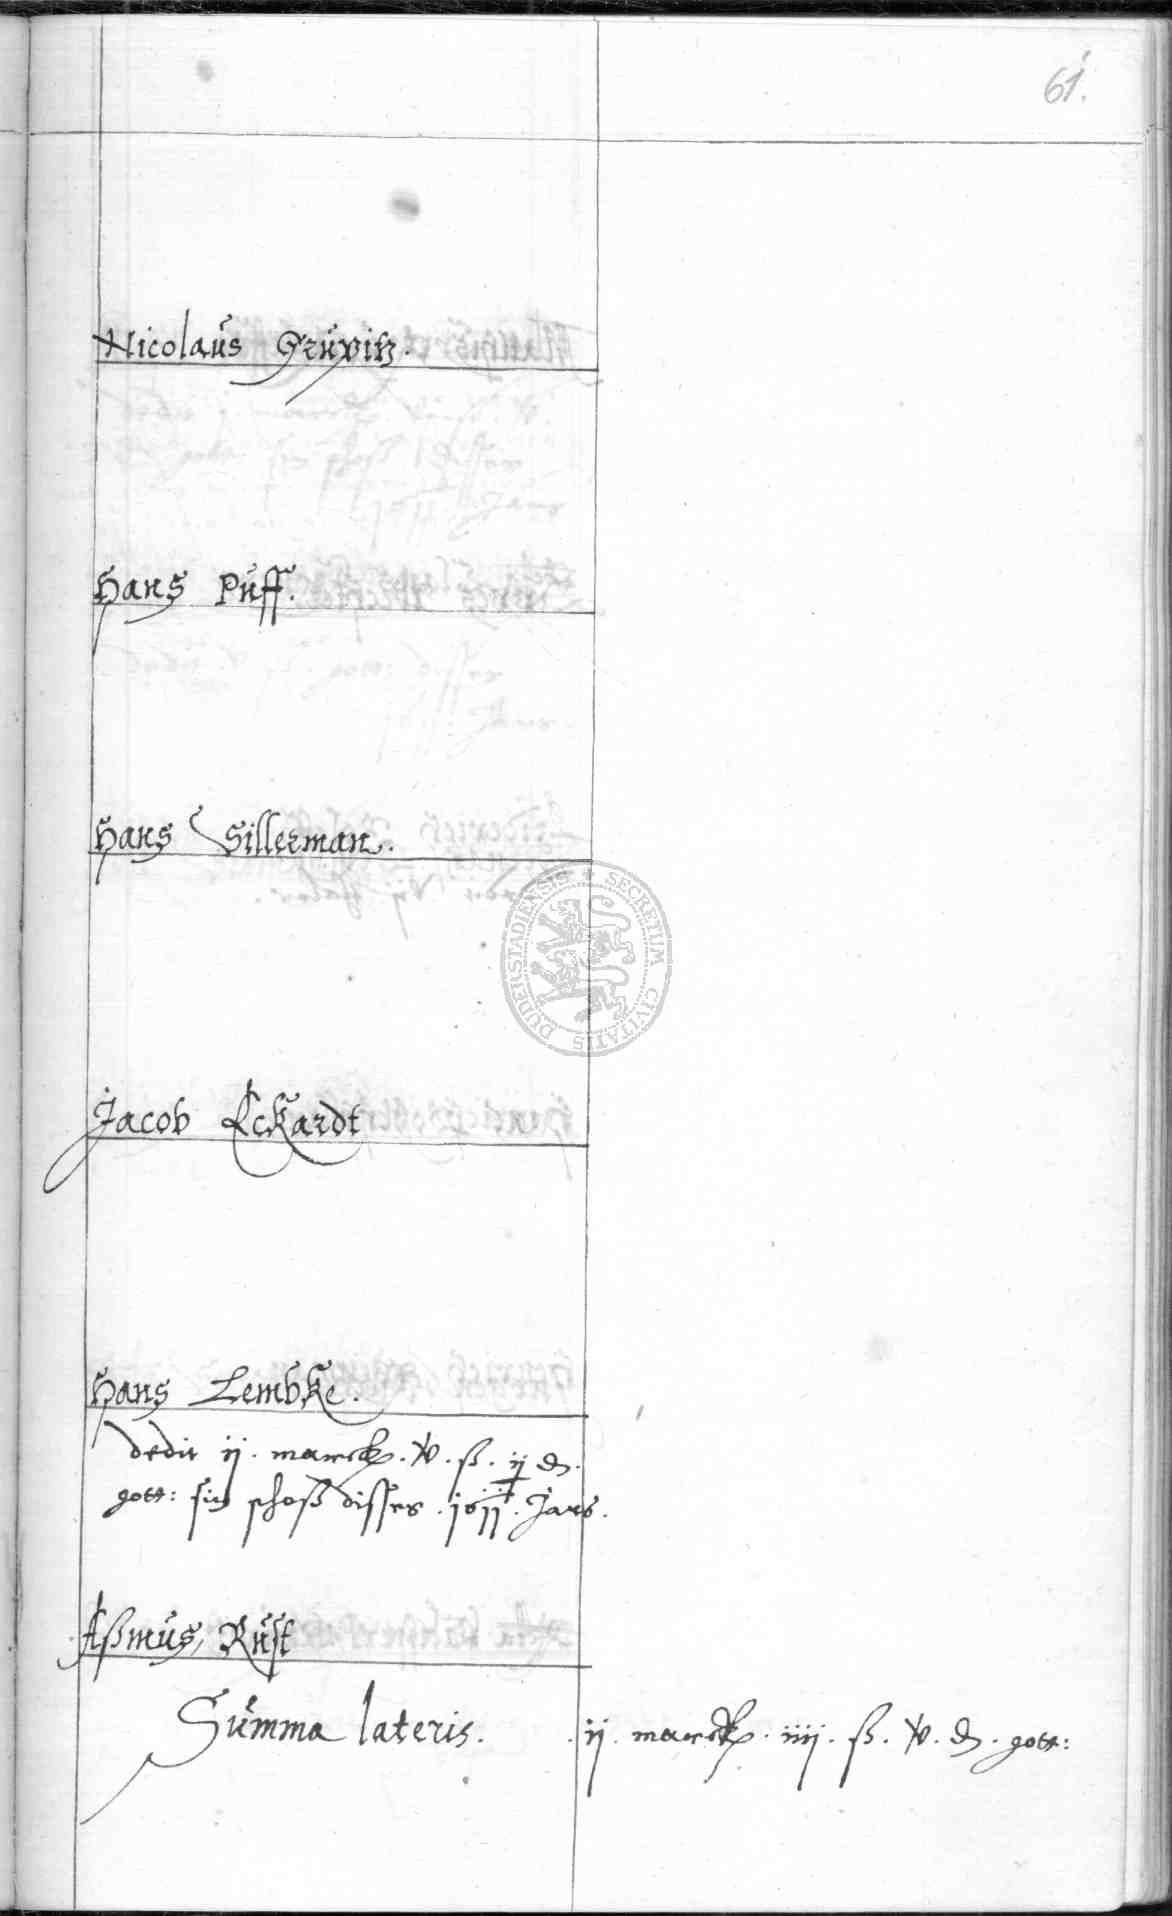 61.
Nicolaus Gruvitz.
Hans Puff.
Hans Sillerman.
Jacob Eckardt
Hans Lembke.
dedit ij. marck. v. ß. ij d.
gott: sin schoß disses Jars.
Aßmus Rust
Summa lateris. ij. marck. iiij. ß. v. d. gott:
DUDERSTADIENSIS SECRETUM CIVITATIS